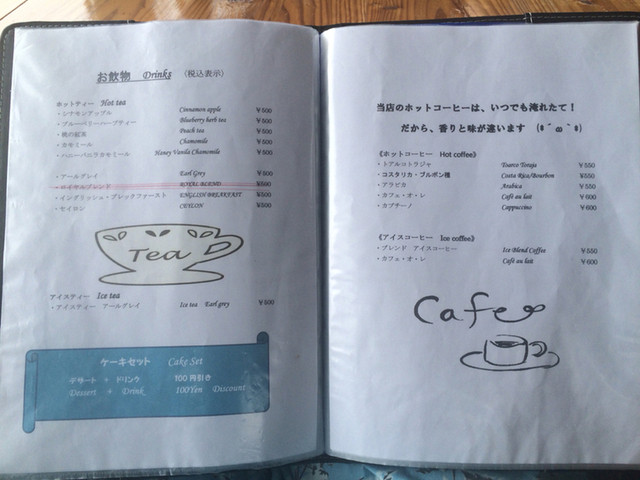 お飲物 Drinks （税込表示）
ホットティー Hot tea
・シナモンアップル Cinnamon apple ￥500
・ブルーベリーハーブティー Blueberry herb tea ￥500
・桃の紅茶 Peach tea ￥500
・カモミール Chamomile ￥500
・ハニーバニラカモミール Honey Vanila Chamomile ￥500
・アールグレイ Earl Grey ￥500
・ロイヤルブレンド ROYAL BLEND ￥500
・イングリッシュ・ブレックファースト ENGLISH BREAKFAST ￥500
・セイロン CEYLON ￥500
Tea
アイスティー Ice tea
・アイスティー アールグレイ Ice tea Earl grey ￥500
ケーキセット Cake Set
デザート + ドリンク 100円引き
Dessert + Drink 100Yen Discount
当店のホットコーヒーは、いつでも淹れたて！
だから、香りと味が違います (*´ω｀*)
《ホットコーヒー Hot coffee》
・トアルコトラジャ Toarco Toraja ￥550
・コスタリカ・ブルボン種 Costa Rica/Bourbon ￥550
・アラビカ Arabica ￥550
・カフェ・オ・レ Café au lait ￥600
・カプチーノ Cappuccino ￥600
《アイスコーヒー Ice coffee》
・ブレンド アイスコーヒー Ice Blend Coffee ￥550
・カフェ・オ・レ Café au lait ￥600
Cafe